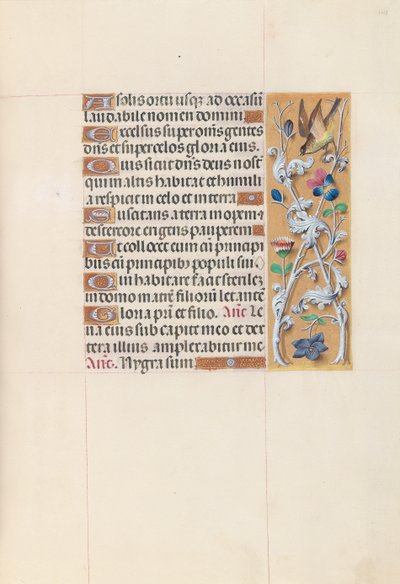 A solis ortu usq; ad occasū
laudabile nomen domini
Excelsus super om̄s gentes
dn̄s et super celos gloria eius.
Quis sicut dn̄s deus nost̄
qui in altis habitat et humili
a respicit in celo et in terra
Suscitans a terra inopem
de stercore erigens pauperem
Ut collocet eum cū principi
bus cū principib; populi sui
Qui habitare facit sterilē
in domo matrē filiorū letantē
Gloria pr̄i et filio. Añt. Le
va eius sub capite meo et dex
tera illius amplexabitur me
Añt. Nygra sum